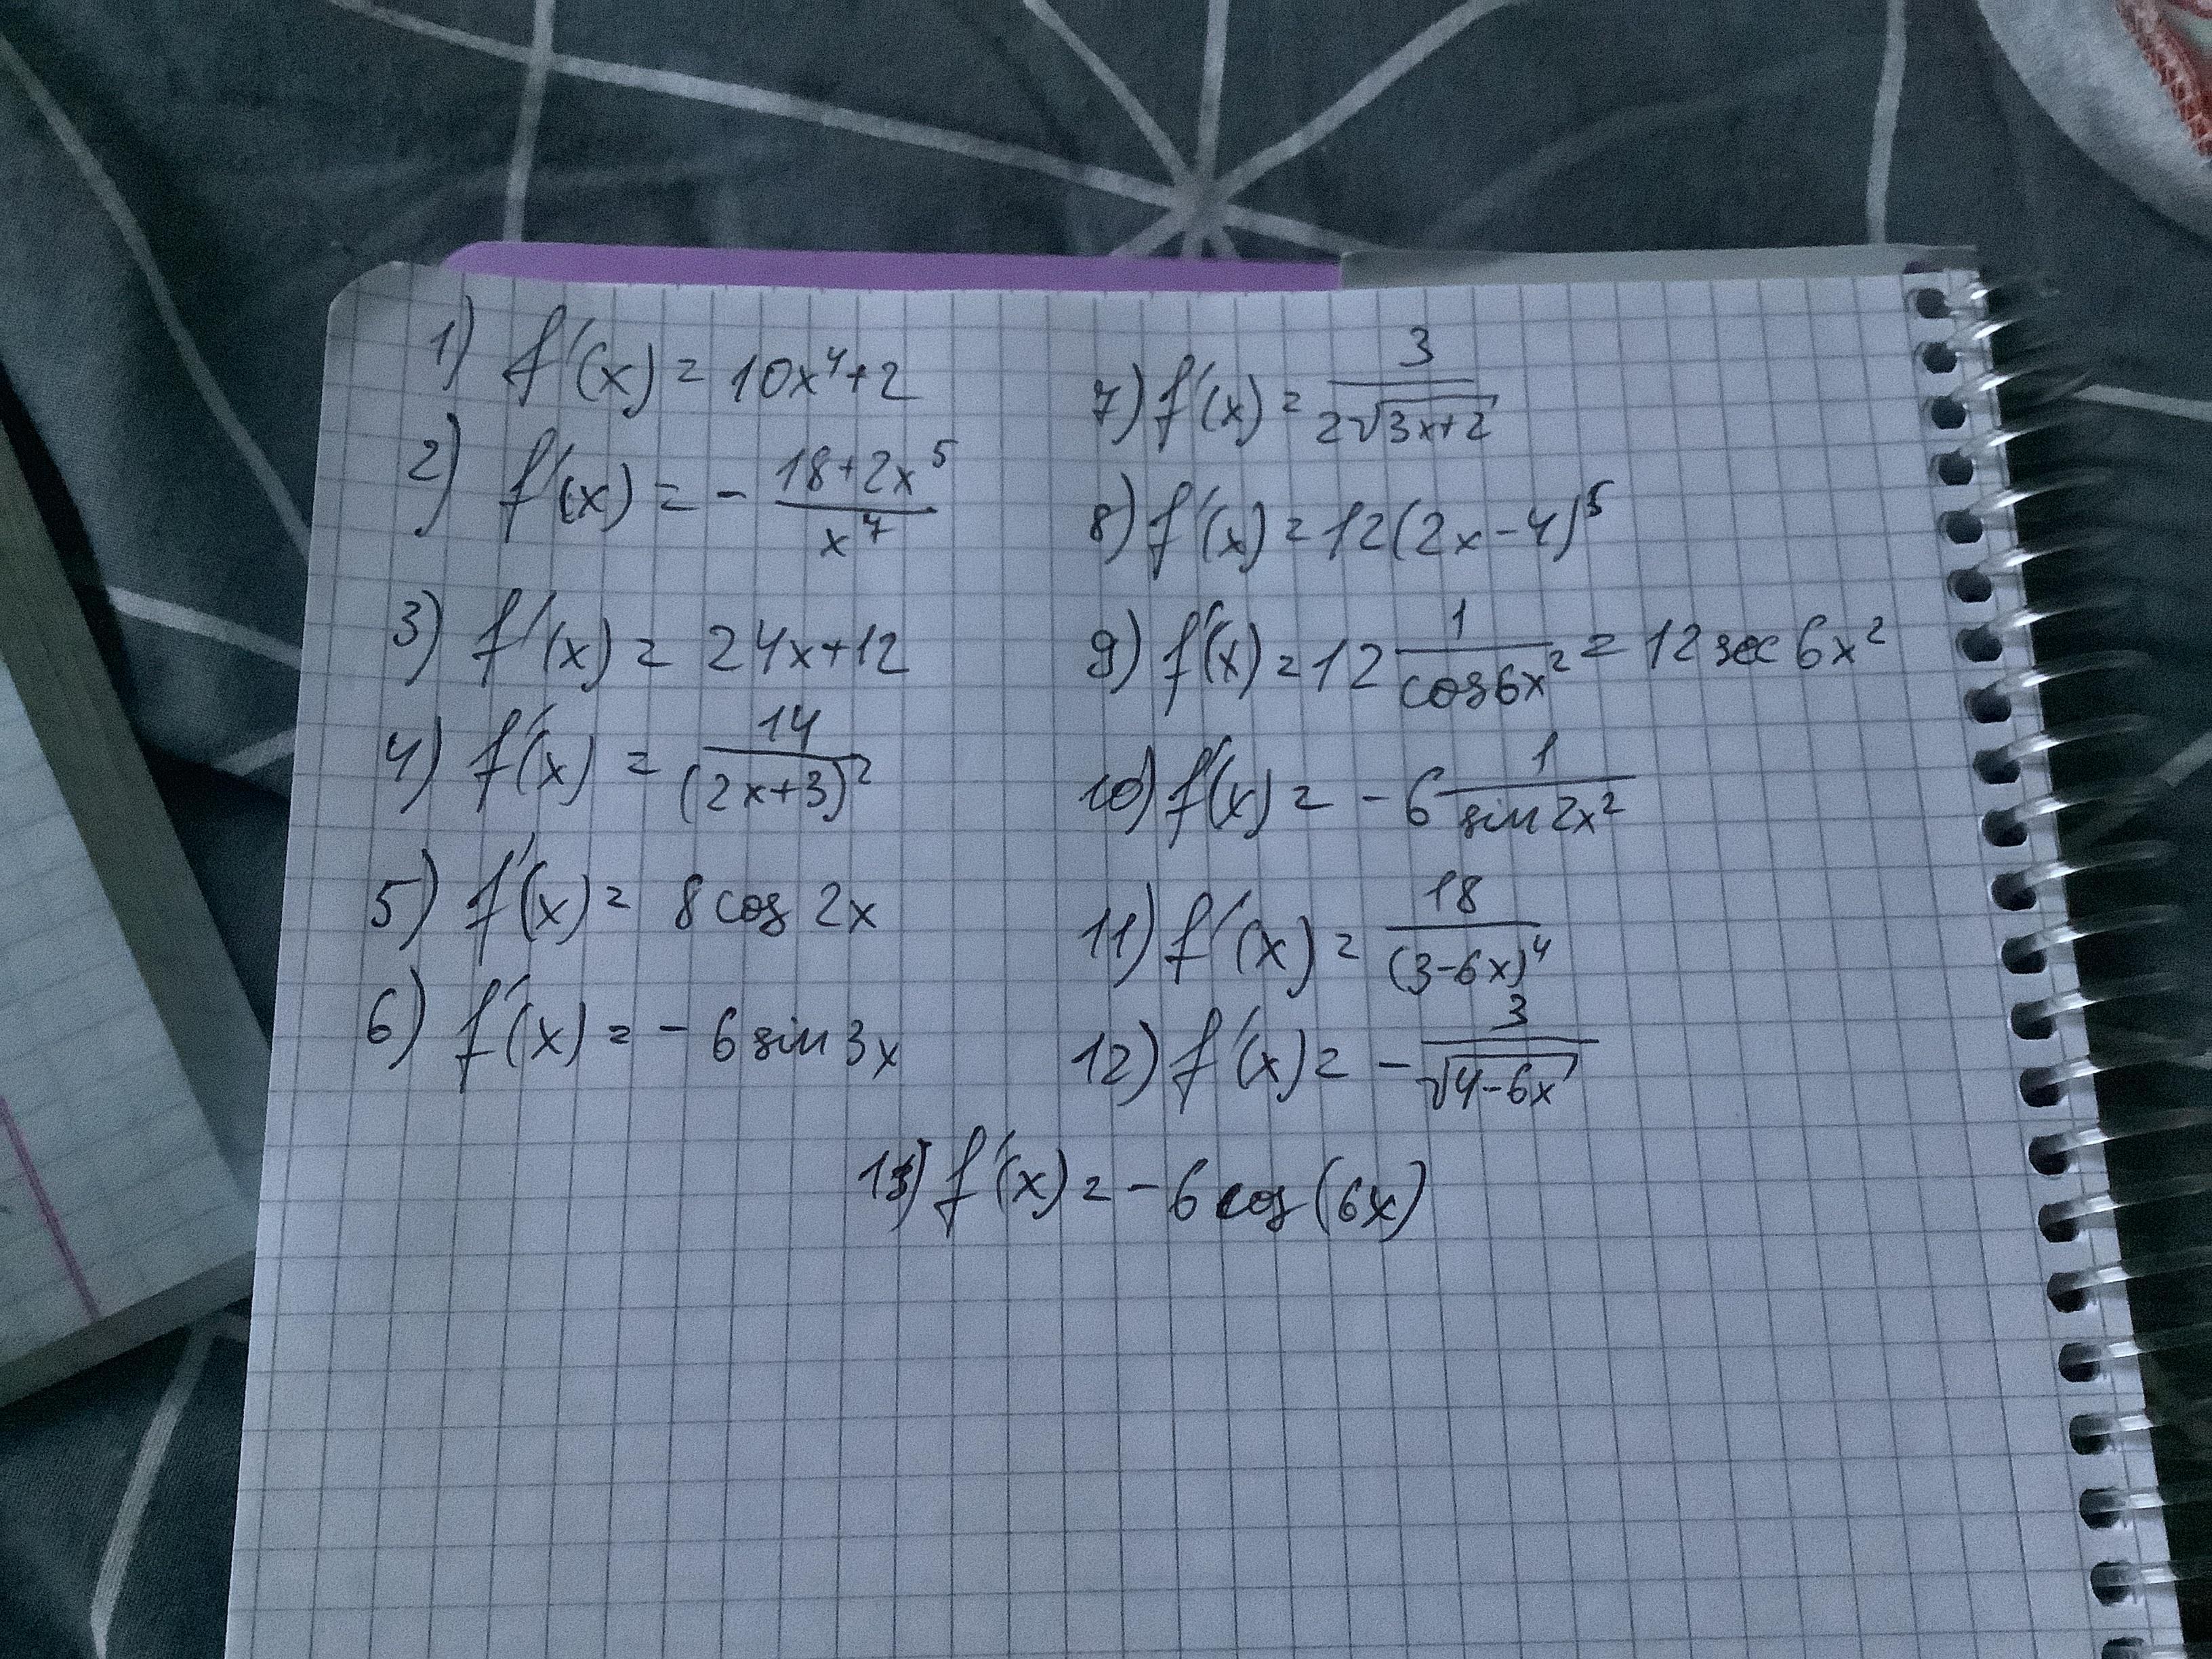 1) f'(x) = 10x⁴+2
2) f'(x) = - (18+2x⁵)/x⁷
3) f'(x) = 24x+12
4) f'(x) = 14/(2x+3)²
5) f'(x) = 8 cos 2x
6) f'(x) = - 6 sin 3x
7) f'(x) = 3/(2√(3x+2))
8) f'(x) = 12(2x-4)⁵
9) f'(x) = 12 1/(cos 6x²) = 12 sec 6x²
10) f'(x) = - 6 1/(sin 2x²)
11) f'(x) = 18/(3-6x)⁴
12) f'(x) = - 3/√(4-6x)
13) f'(x) = - 6 cos(6x)